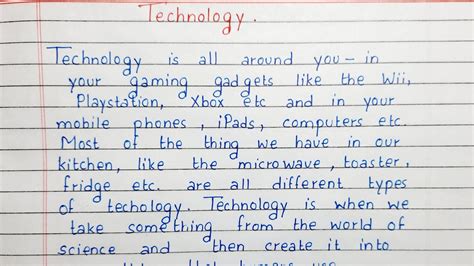 Technology.
Technology is all around you - in
your gaming gadgets like the Wii,
Playstation, Xbox etc and in your
mobile phones, iPads, computers etc.
Most of the thing we have in our
kitchen, like the microwave, toaster,
fridge etc. are all different types
of techology. Technology is when we
take something from the world of
science and then create it into